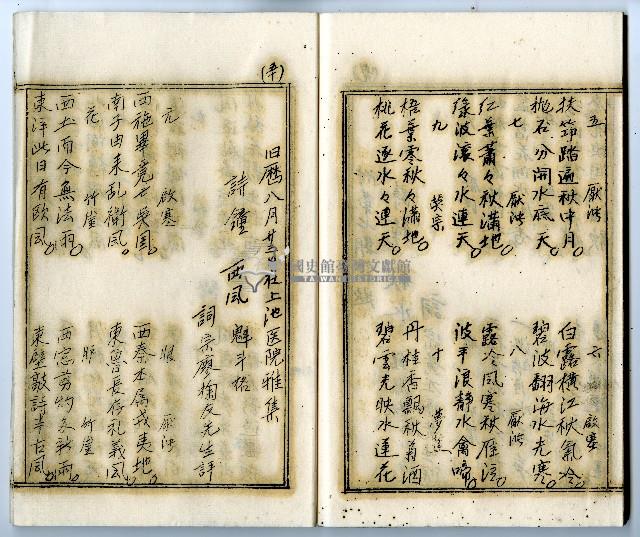 五 厭潮
扶筇踏遍秋中月。
抛石分開水底天。
七 厭潮
红葉蕭々秋滿地。
綠波滾々水連天。
九 榮宗
梧葉寒秋々滿地。
桃花逐水々連天。
六 啟塞
白露橫江秋氣冷
碧波翻海水光寒。
八
露冷風寒秋雁泣
波平浪静水禽啼。
十
丹桂香飄秋菊酒
碧雲光映水蓮花
(五)
旧曆八月廿三日社上池医院雅集
詩鐘 西風 魁斗格
詞宗廖掬友先生評
元 啟塞
西施畢竟亡吳国
南子由来乱衛風。
花 竹崖
西土而今無法雨。
東洋此日有欧風。
眼
西秦本屬戎夷地。
東魯長存礼義風
臚 竹崖
西窓剪燭久談雨
東壁敲詩半古風。
國史館臺灣文獻館
TAIWAN HISTORICA